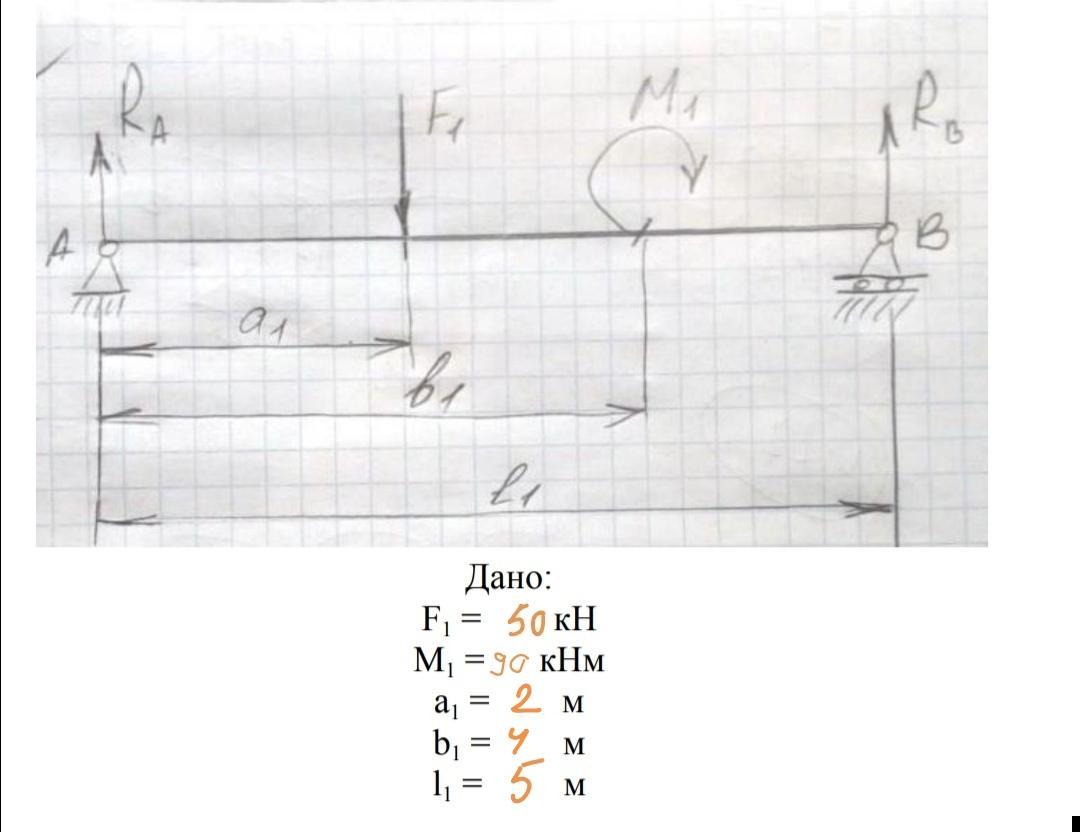 R_A F₁ M₁ R_B
A B
a₁
b₁
l₁
Дано:
F₁ = 50 кН
M₁ = 90 кНм
a₁ = 2 м
b₁ = 4 м
l₁ = 5 м